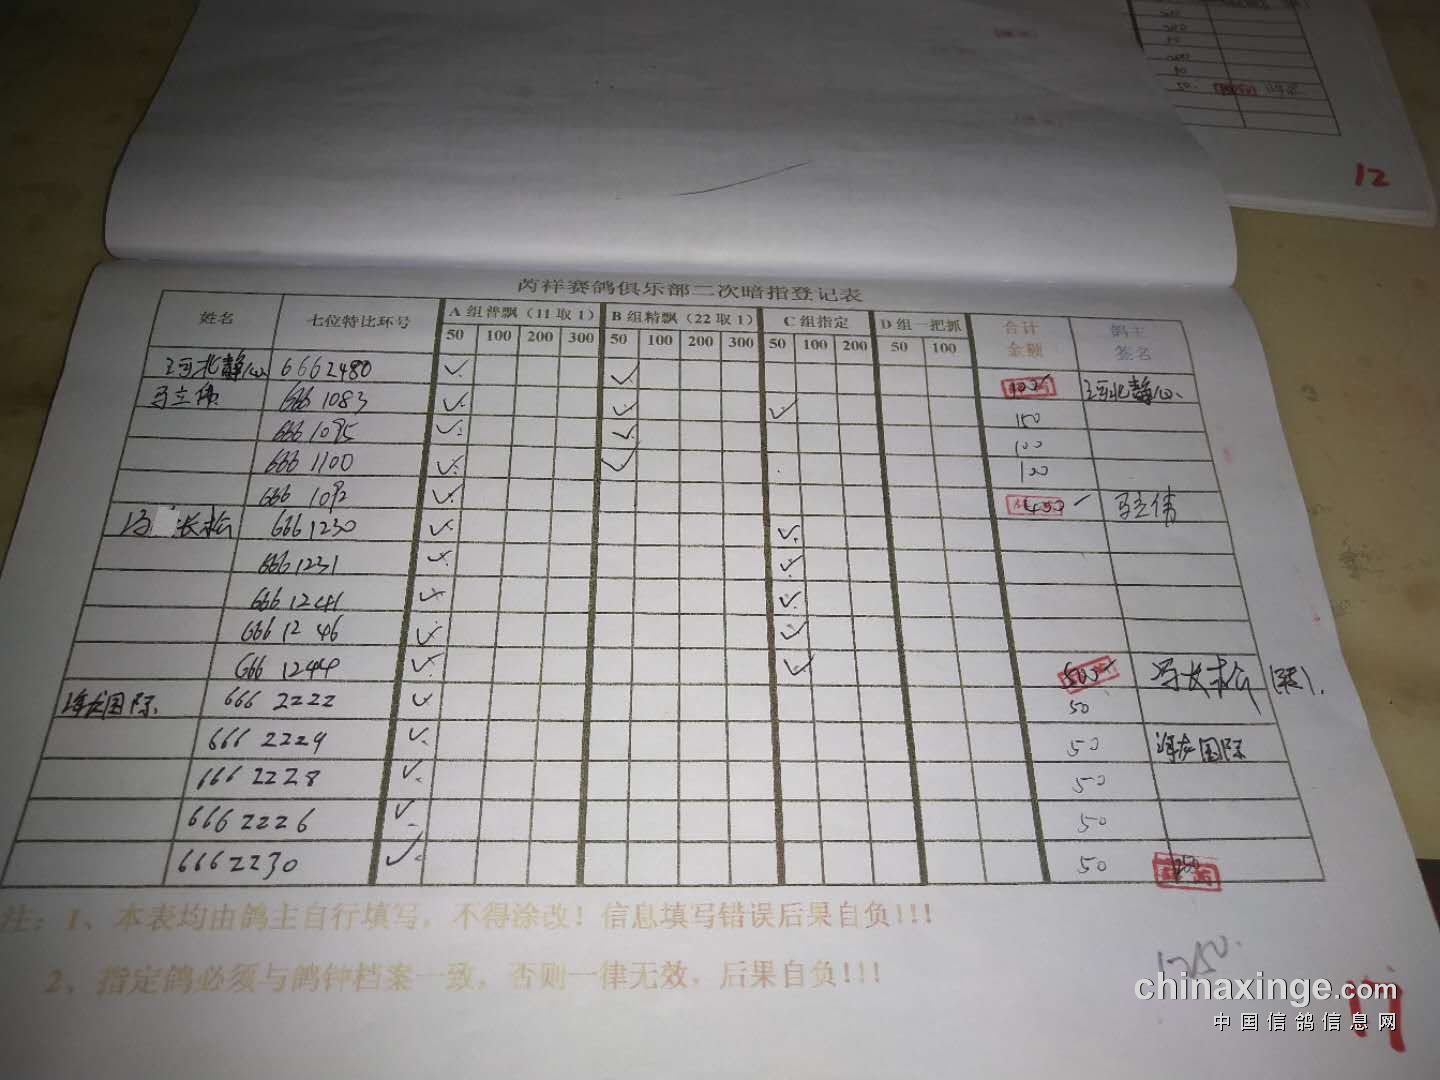 12
芮祥赛鸽俱乐部二次暗指登记表
姓名 七位特比环号 A组普飘（11取1） B组精飘（22取1） C组指定 D组一把抓 合计金额 鸽主签名
50 100 200 300 50 100 200 300 50 100 200 50 100
河北静心 6662480 ✓ ✓ 100 河北静心
马立伟 6661083 ✓ ✓ ✓ 150
6661095 ✓ ✓ 100
6661100 ✓ ✓ 100
6661092 ✓ 400 马立伟
冯长松 6661230 ✓ ✓
6661231 ✓ ✓
6661241 ✓ ✓
6661246 ✓ ✓
6661244 ✓ ✓ 500 冯长松
海龙国际 6662222 ✓ 50
6662229 ✓ 50 海龙国际
6662228 ✓ 50
6662226 ✓ 50
6662230 ✓ 50 250
注：1、本表均由鸽主自行填写，不得涂改！信息填写错误后果自负!!!
2、指定鸽必须与鸽钟档案一致，否则一律无效，后果自负!!!
1250.
chinaxinge.com
中国信鸽信息网